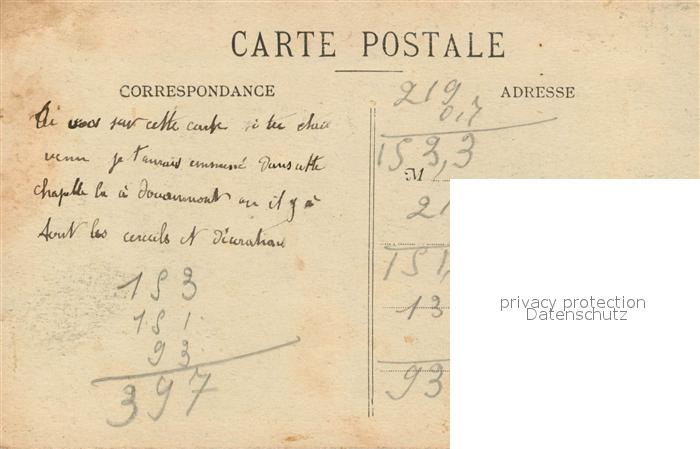 CARTE POSTALE
CORRESPONDANCE
ADRESSE
sur cette carte si tu étais
venu je t'aurais emmené dans cette
chapelle la à douaumont ou il y a
tout les cerceuils et décorations
153
151
93
397
219
0,7
153,3
M
21
151,
13
93
privacy protection
Datenschutz